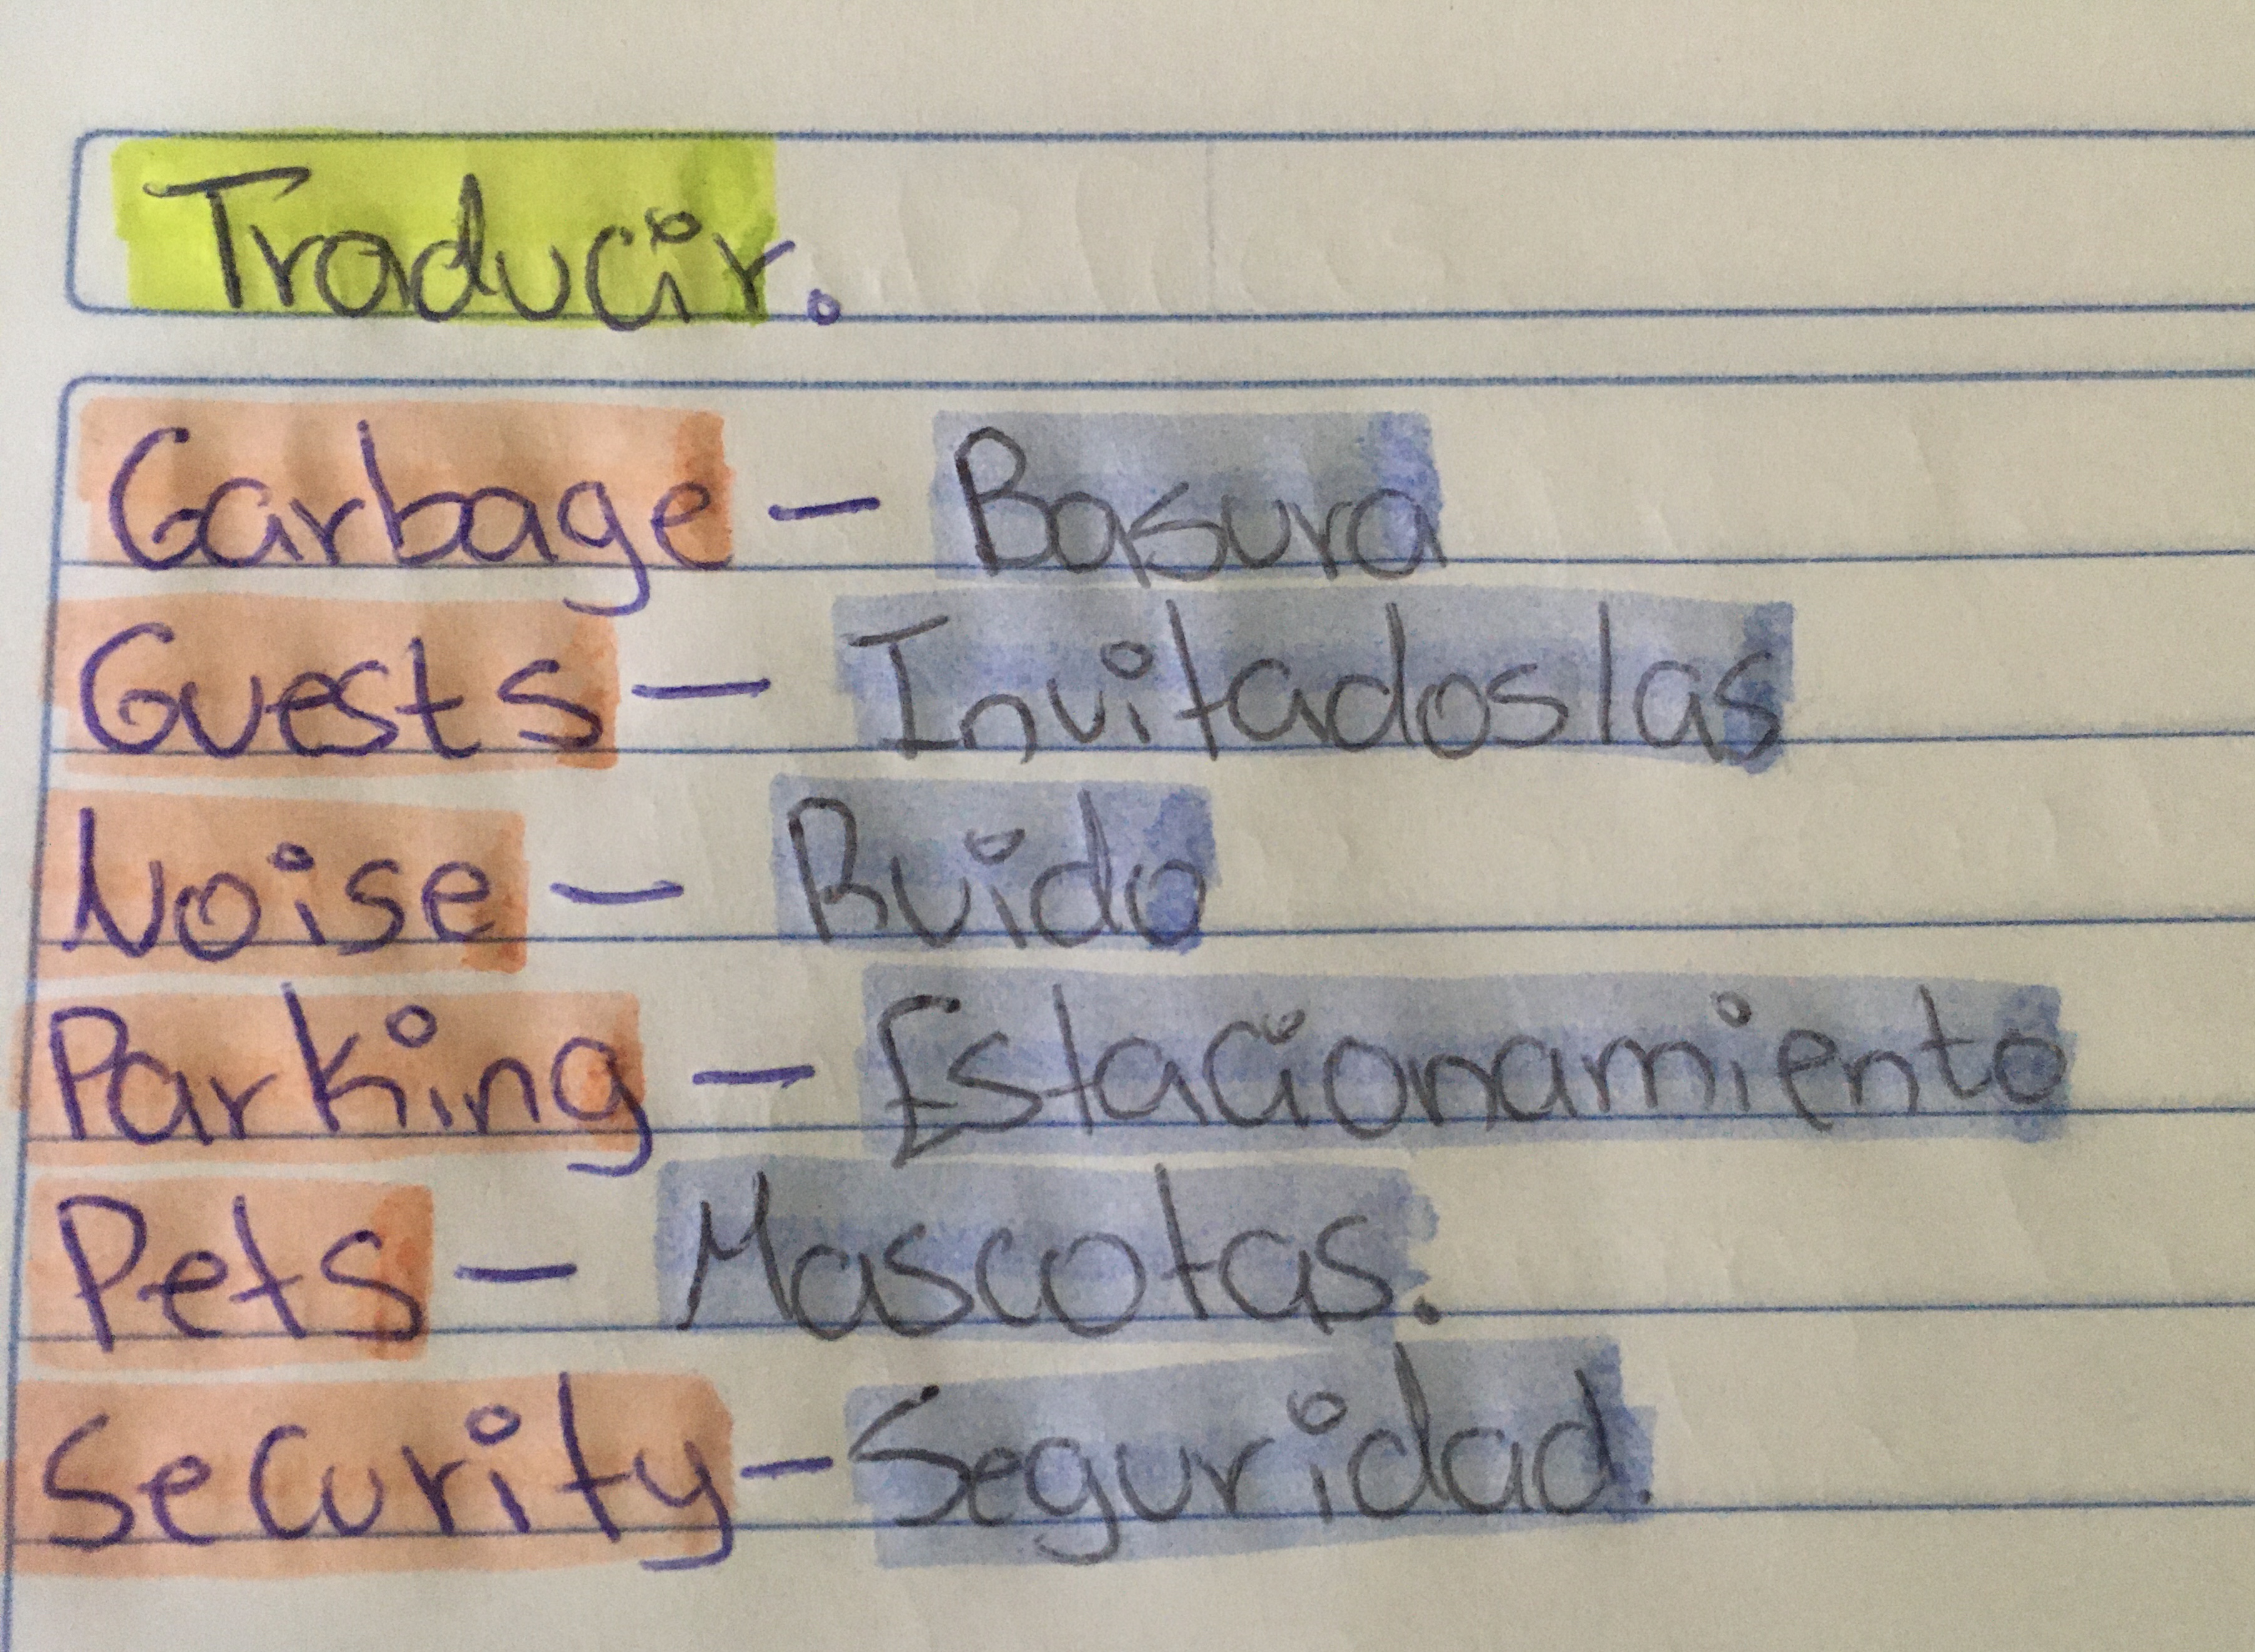 Traducir.
Garbage - Basura
Guests - Invitados/as
Noise - Ruido
Parking - Estacionamiento
Pets - Mascotas.
Security - Seguridad.